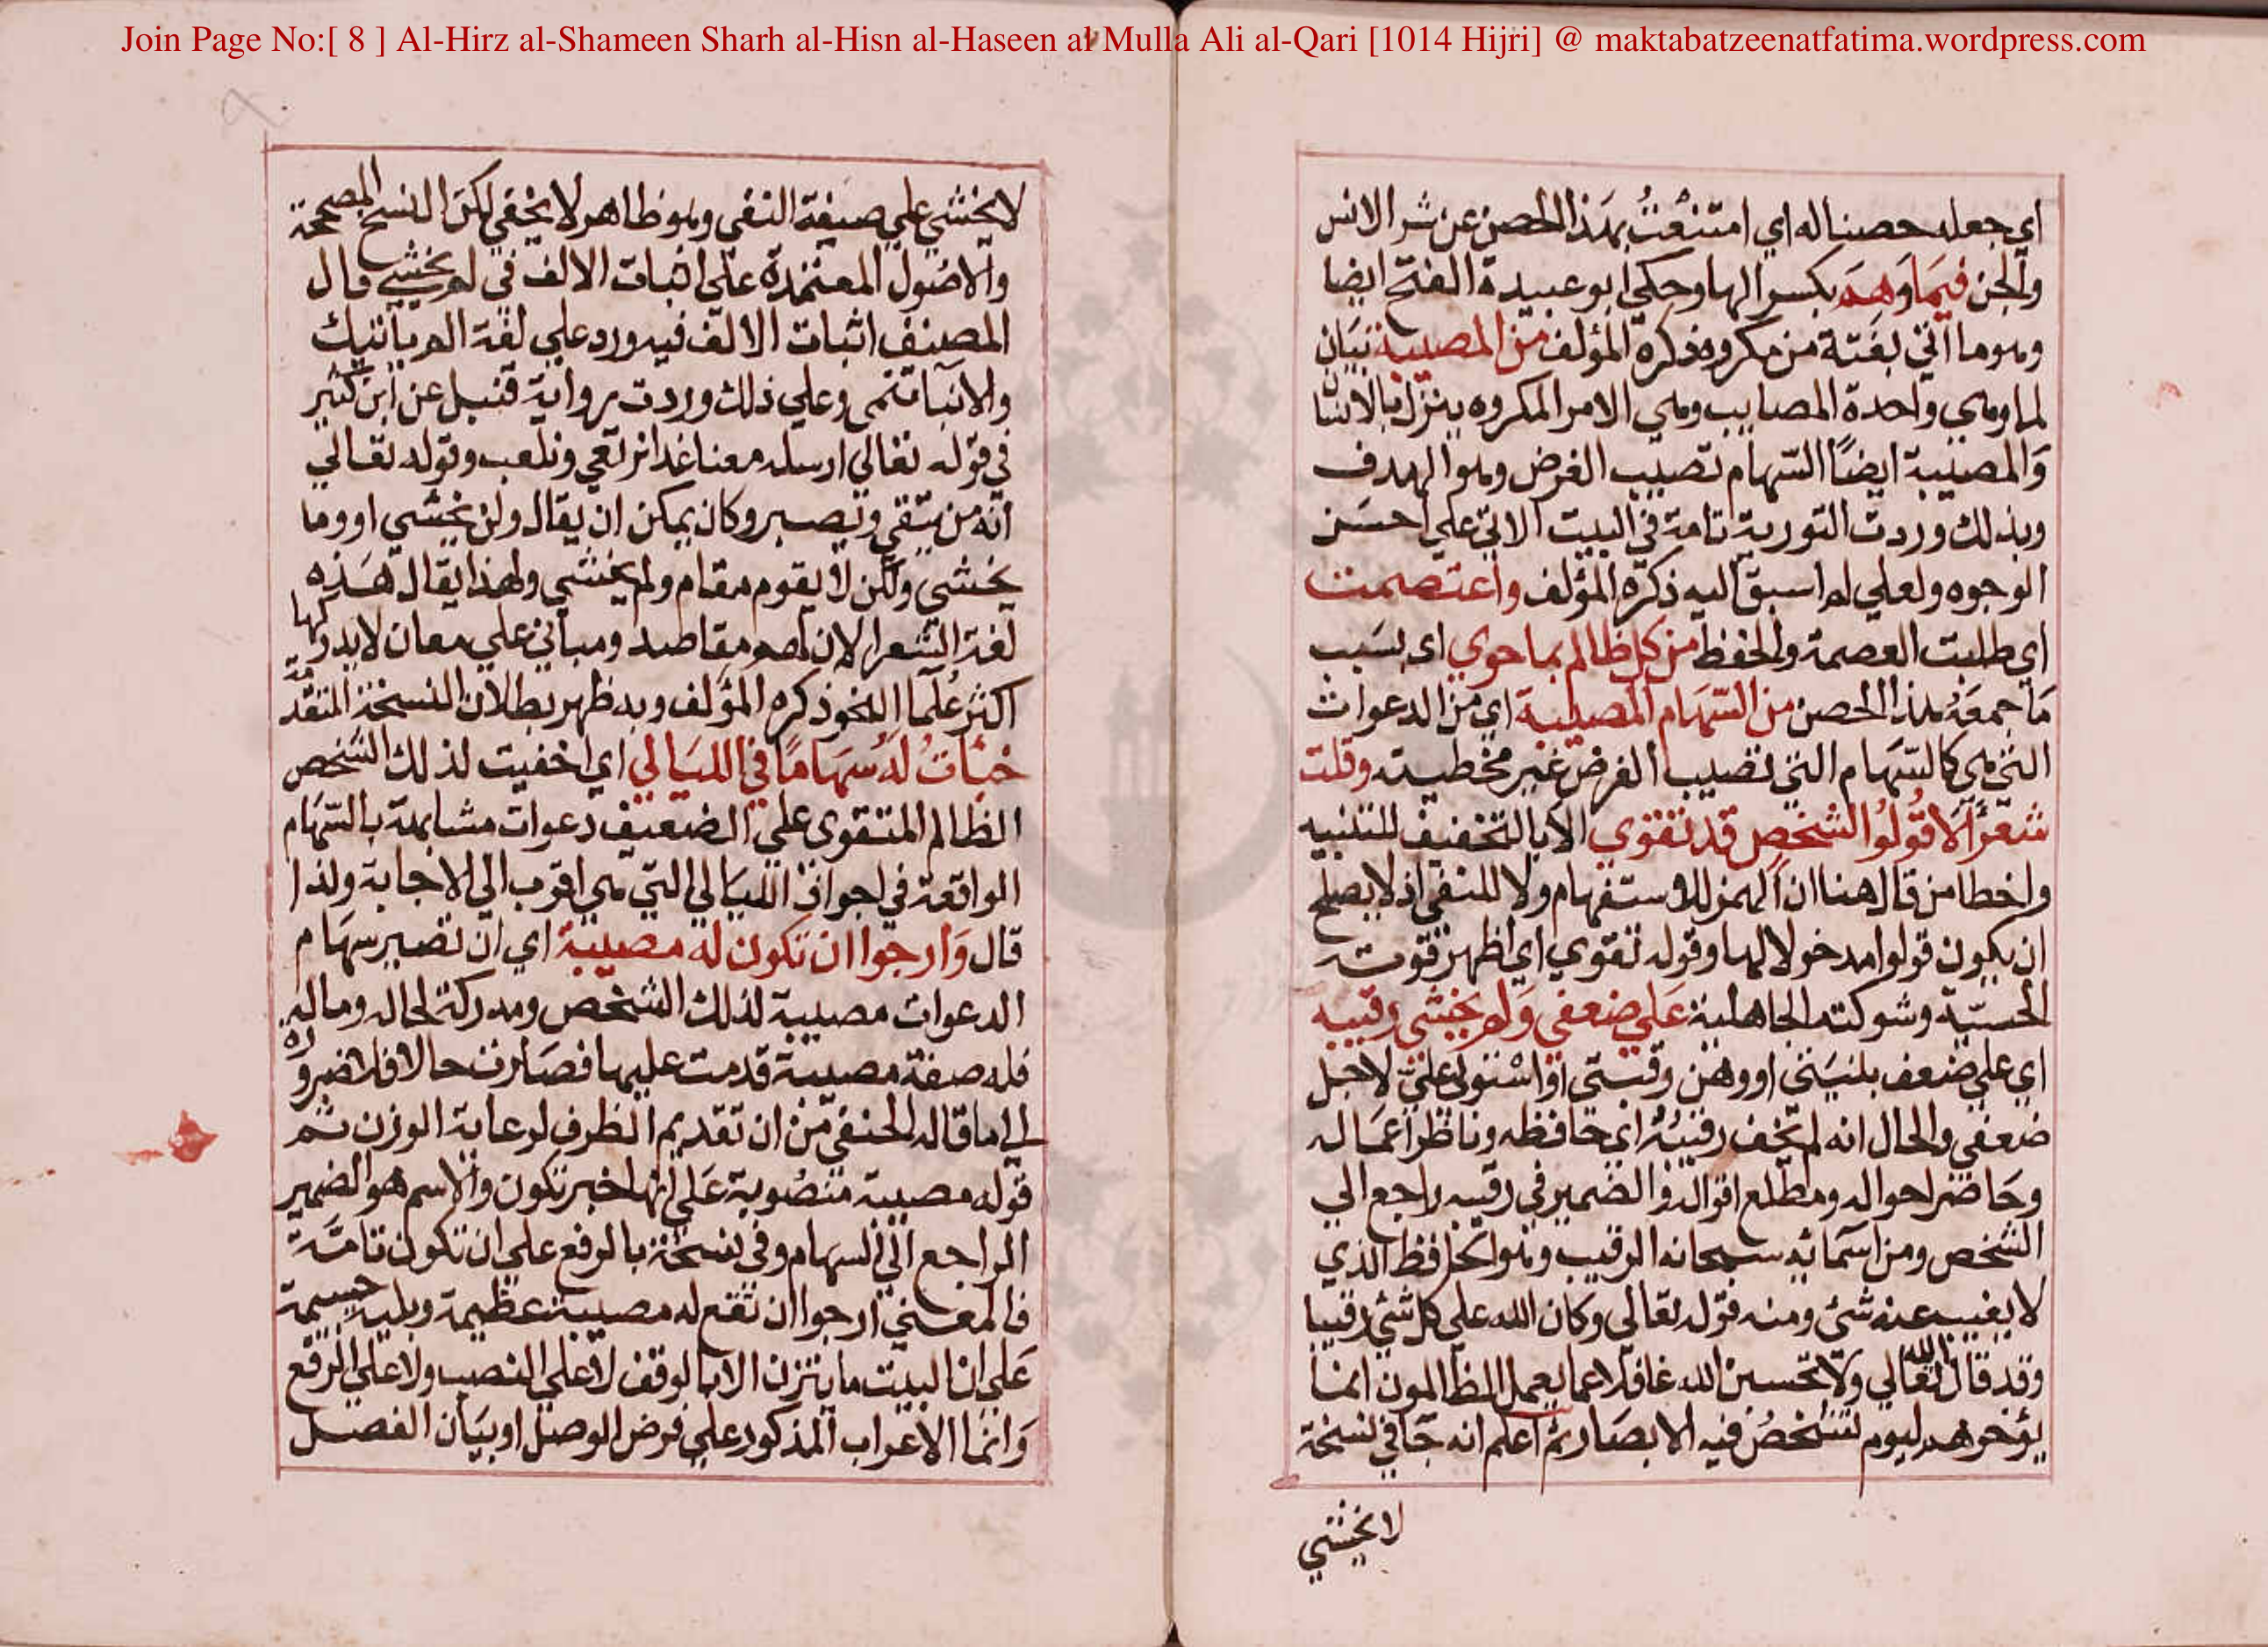 Join Page No:[ 8 ] Al-Hirz al-Shameen Sharh al-Hisn al-Haseen al Mulla Ali al-Qari [1014 Hijri] @ maktabatzeenatfatima.wordpress.com
اي جعله حصنا له اي امتنعت بهذا الحصن عن شر الانس
والجن فيما وهم بكسر الها وحكي ابو عبيدة الفتح ايضا
وهو ما اتي بغتة من مكروه ذكره المؤلف من المصيبة بيان
لما وهي واحدة المصايب وهي الامر المكروه ينزل بالانسا
والمصيبة ايضا السهام تصيب الغرض وهو الهدف
وبذلك وردت التورية تامة في البيت الاتي علي احسن
الوجوه ولعلي لم اسبق اليه ذكره المؤلف واعتصمت
اي طلبت العصمة والحفظ من كل ظالم بما حوي اي بسبب
ما جمعه هذا الحصن من السهام المصيبة اي من الدعوات
التي هي كالسهام التي تصيب الغرض غير مخطيته وقلت
شعرا الا قولوا لشخص قد تقوي الا بالتخفيف للتنبيه
واخطا من قال هنا ان الهمز للاستفهام ولا للنفي اذ لا يصلح
ان يكون قولوا مدخولا لها وقوله تقوي اي اظهر قوته
الحسية وشوكته الجاهلية علي ضعفي ولم يخشي رقيبه
اي علي ضعف بلنيتي او وهن رقبتي او استولي علي لاجل
ضعفي والحال انه لم يخف رقيبه اي حافظه وناظر اعماله
وحاضر احواله ومطلع اقواله والضمير في رقيبه راجع الي
الشخص ومن اسمائه سبحانه الرقيب وهو الحافظ الذي
لا يغيب عنه شئ ومنه قوله تعالي وكان الله علي كل شئ رقيبا
وقد قال الله تعالي ولا تحسبن الله غافلا عما يعمل الظالمون انما
يؤخرهم ليوم تشخص فيه الابصار ثم اعلم انه جا في نسخة
لا يخشي
لا يخشي علي صيغة النفي وهو ظاهر لا يخفي لكن النسخ المصححة
والاصول المعتمدة علي اثبات الالف في لم يخشي قال
المصنف اثبات الالف فيه ورد علي لغة الم ياتيك
والانبا تنمي وعلي ذلك وردت رواية قنبل عن ابن كثير
في قوله تعالي ارسله معنا غدا نرتعي ونلعب وقوله تعالي
انه من يتقي ويصبر وكان يمكن ان يقال ولن يخشي او وما
يخشي ولكن لا يقوم مقام ولم يخشي ولهذا يقال هذه
لغة الشعرا لان لهم مقاصد ومباني علي معان لا يدركها
اكثر علما النحو ذكره المؤلف وبه ظهر بطلان النسخة المتقدمة
خبأت له سهاما في الليالي اي اخفيت لذلك الشخص
الظالم المتقوي علي الضعيف دعوات مشابهة بالسهام
الواقعة في اجواف الليالي التي هي اقرب الي الاجابة ولذا
قال وارجوا ان تكون له مصيبة اي ان تصير سهام
الدعوات مصيبة لذلك الشخص ومدركة لحاله وماله
فله صفة مصيبة قدمت عليها فصارت حالا فلا ضرورة
الي ما قاله الحنفي من ان تقديم الظرف لرعاية الوزن ثم
قوله مصيبة منصوبة علي انها خبر تكون والاسم هو الضمير
الراجع الي السهام وفي نسخة بالرفع علي ان تكون تامة
فالمعني ارجوا ان تقع له مصيبة عظيمة وبلية جسيمة
علي ان البيت ما يتزن الا بالوقف لا علي النصب ولا علي الرفع
وانما الاعراب المذكور علي فرض الوصل او بيان الفصل